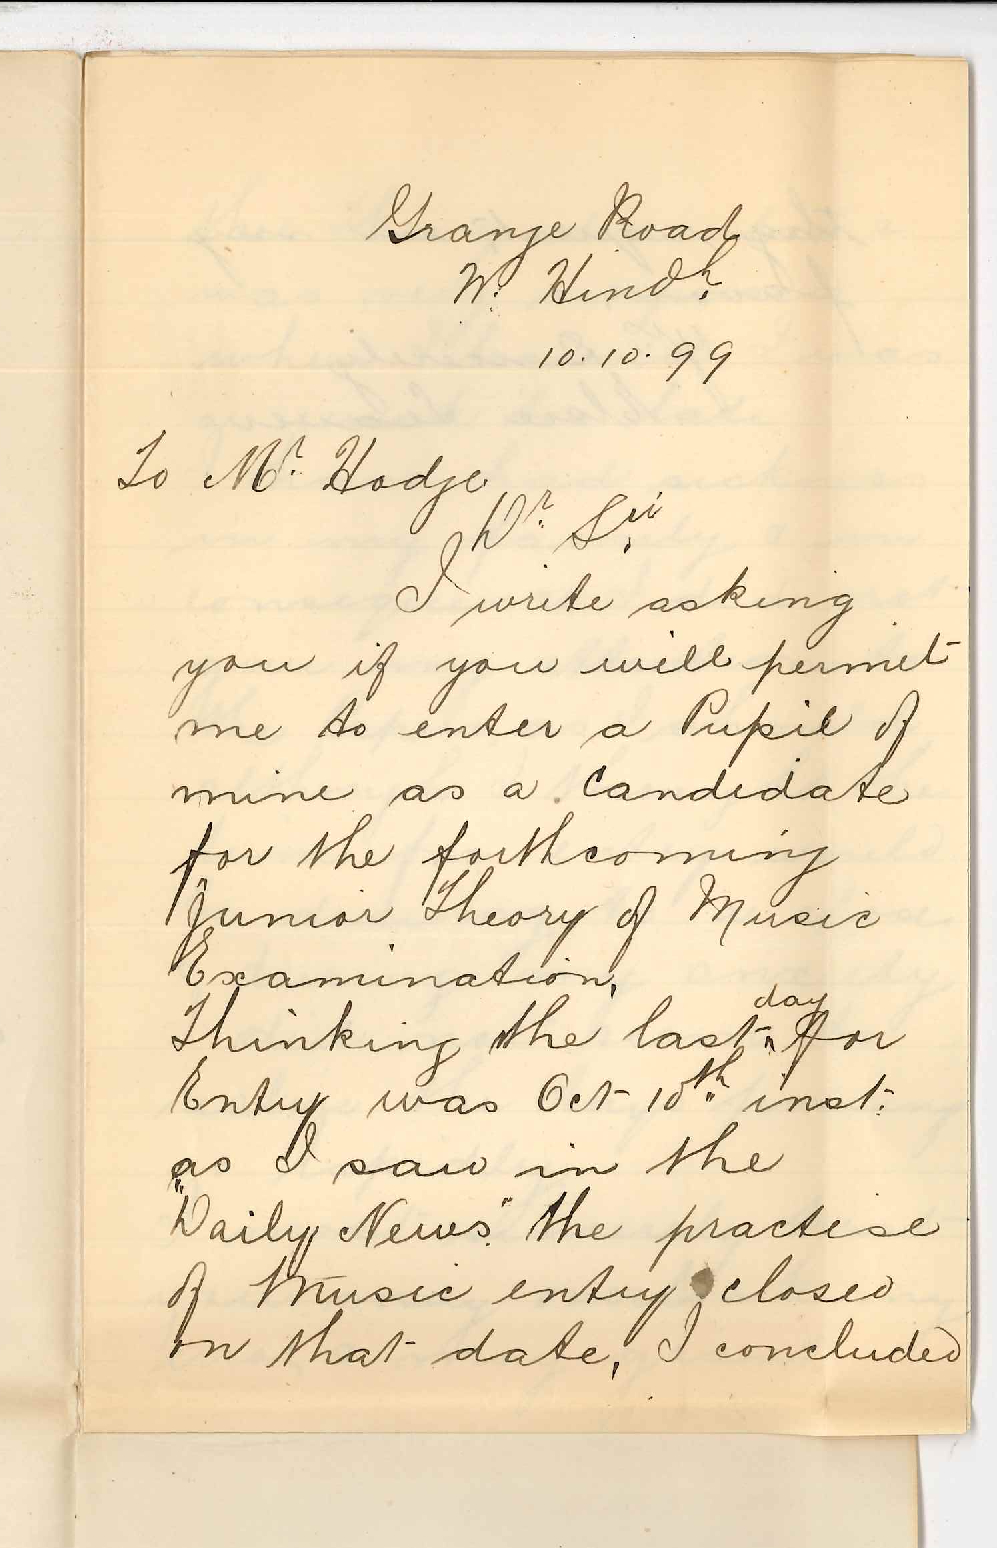 Grange Road
W. Hindh.
10.10.99
To Mr. Hodge
Dr. Sir.
I write asking
you if you will permit
me to enter a Pupil of
mine as a candidate
for the forthcoming
Junior Theory of Music
Examination,
Thinking the last day for
Entry was Oct 10th inst.
as I saw in the
"Daily News" the practise
of Music entry closed
on that date, I concluded